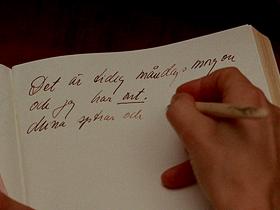 Det är tidig måndags morgon
och jag har ont.
dessa spetsar och